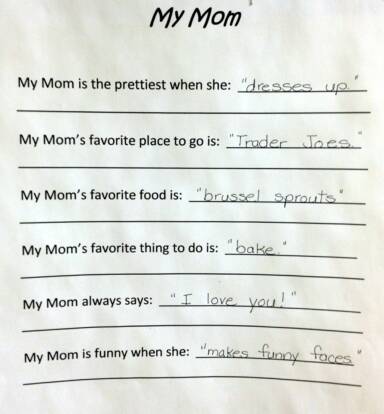 My Mom
My Mom is the prettiest when she: "dresses up."
My Mom's favorite place to go is: "Trader Joes."
My Mom's favorite food is: "brussel sprouts"
My Mom's favorite thing to do is: "bake."
My Mom always says: "I love you!"
My Mom is funny when she: "makes funny faces"